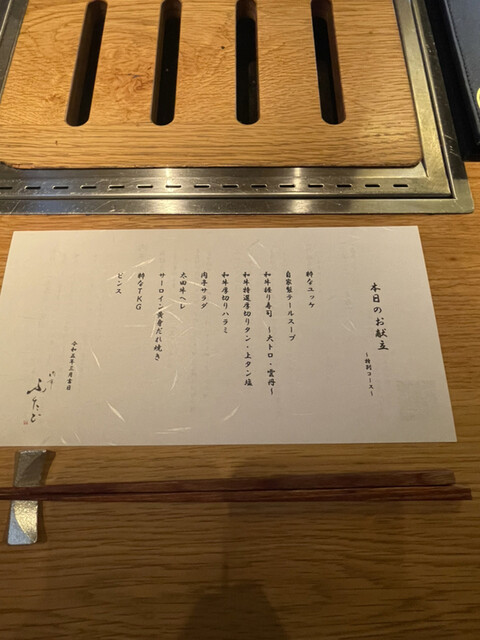 本日のお献立
～特別コース～
粋なユッケ
自家製テールスープ
和牛握り寿司 ～大トロ・雲丹～
和牛特選厚切りタン・上タン塩
和牛厚切りハラミ
肉亭サラダ
太田牛ヘレ
サーロイン黄身だれ焼き
粋なTKG
ビンス
令和五年三月吉日
肉亭
ふたご